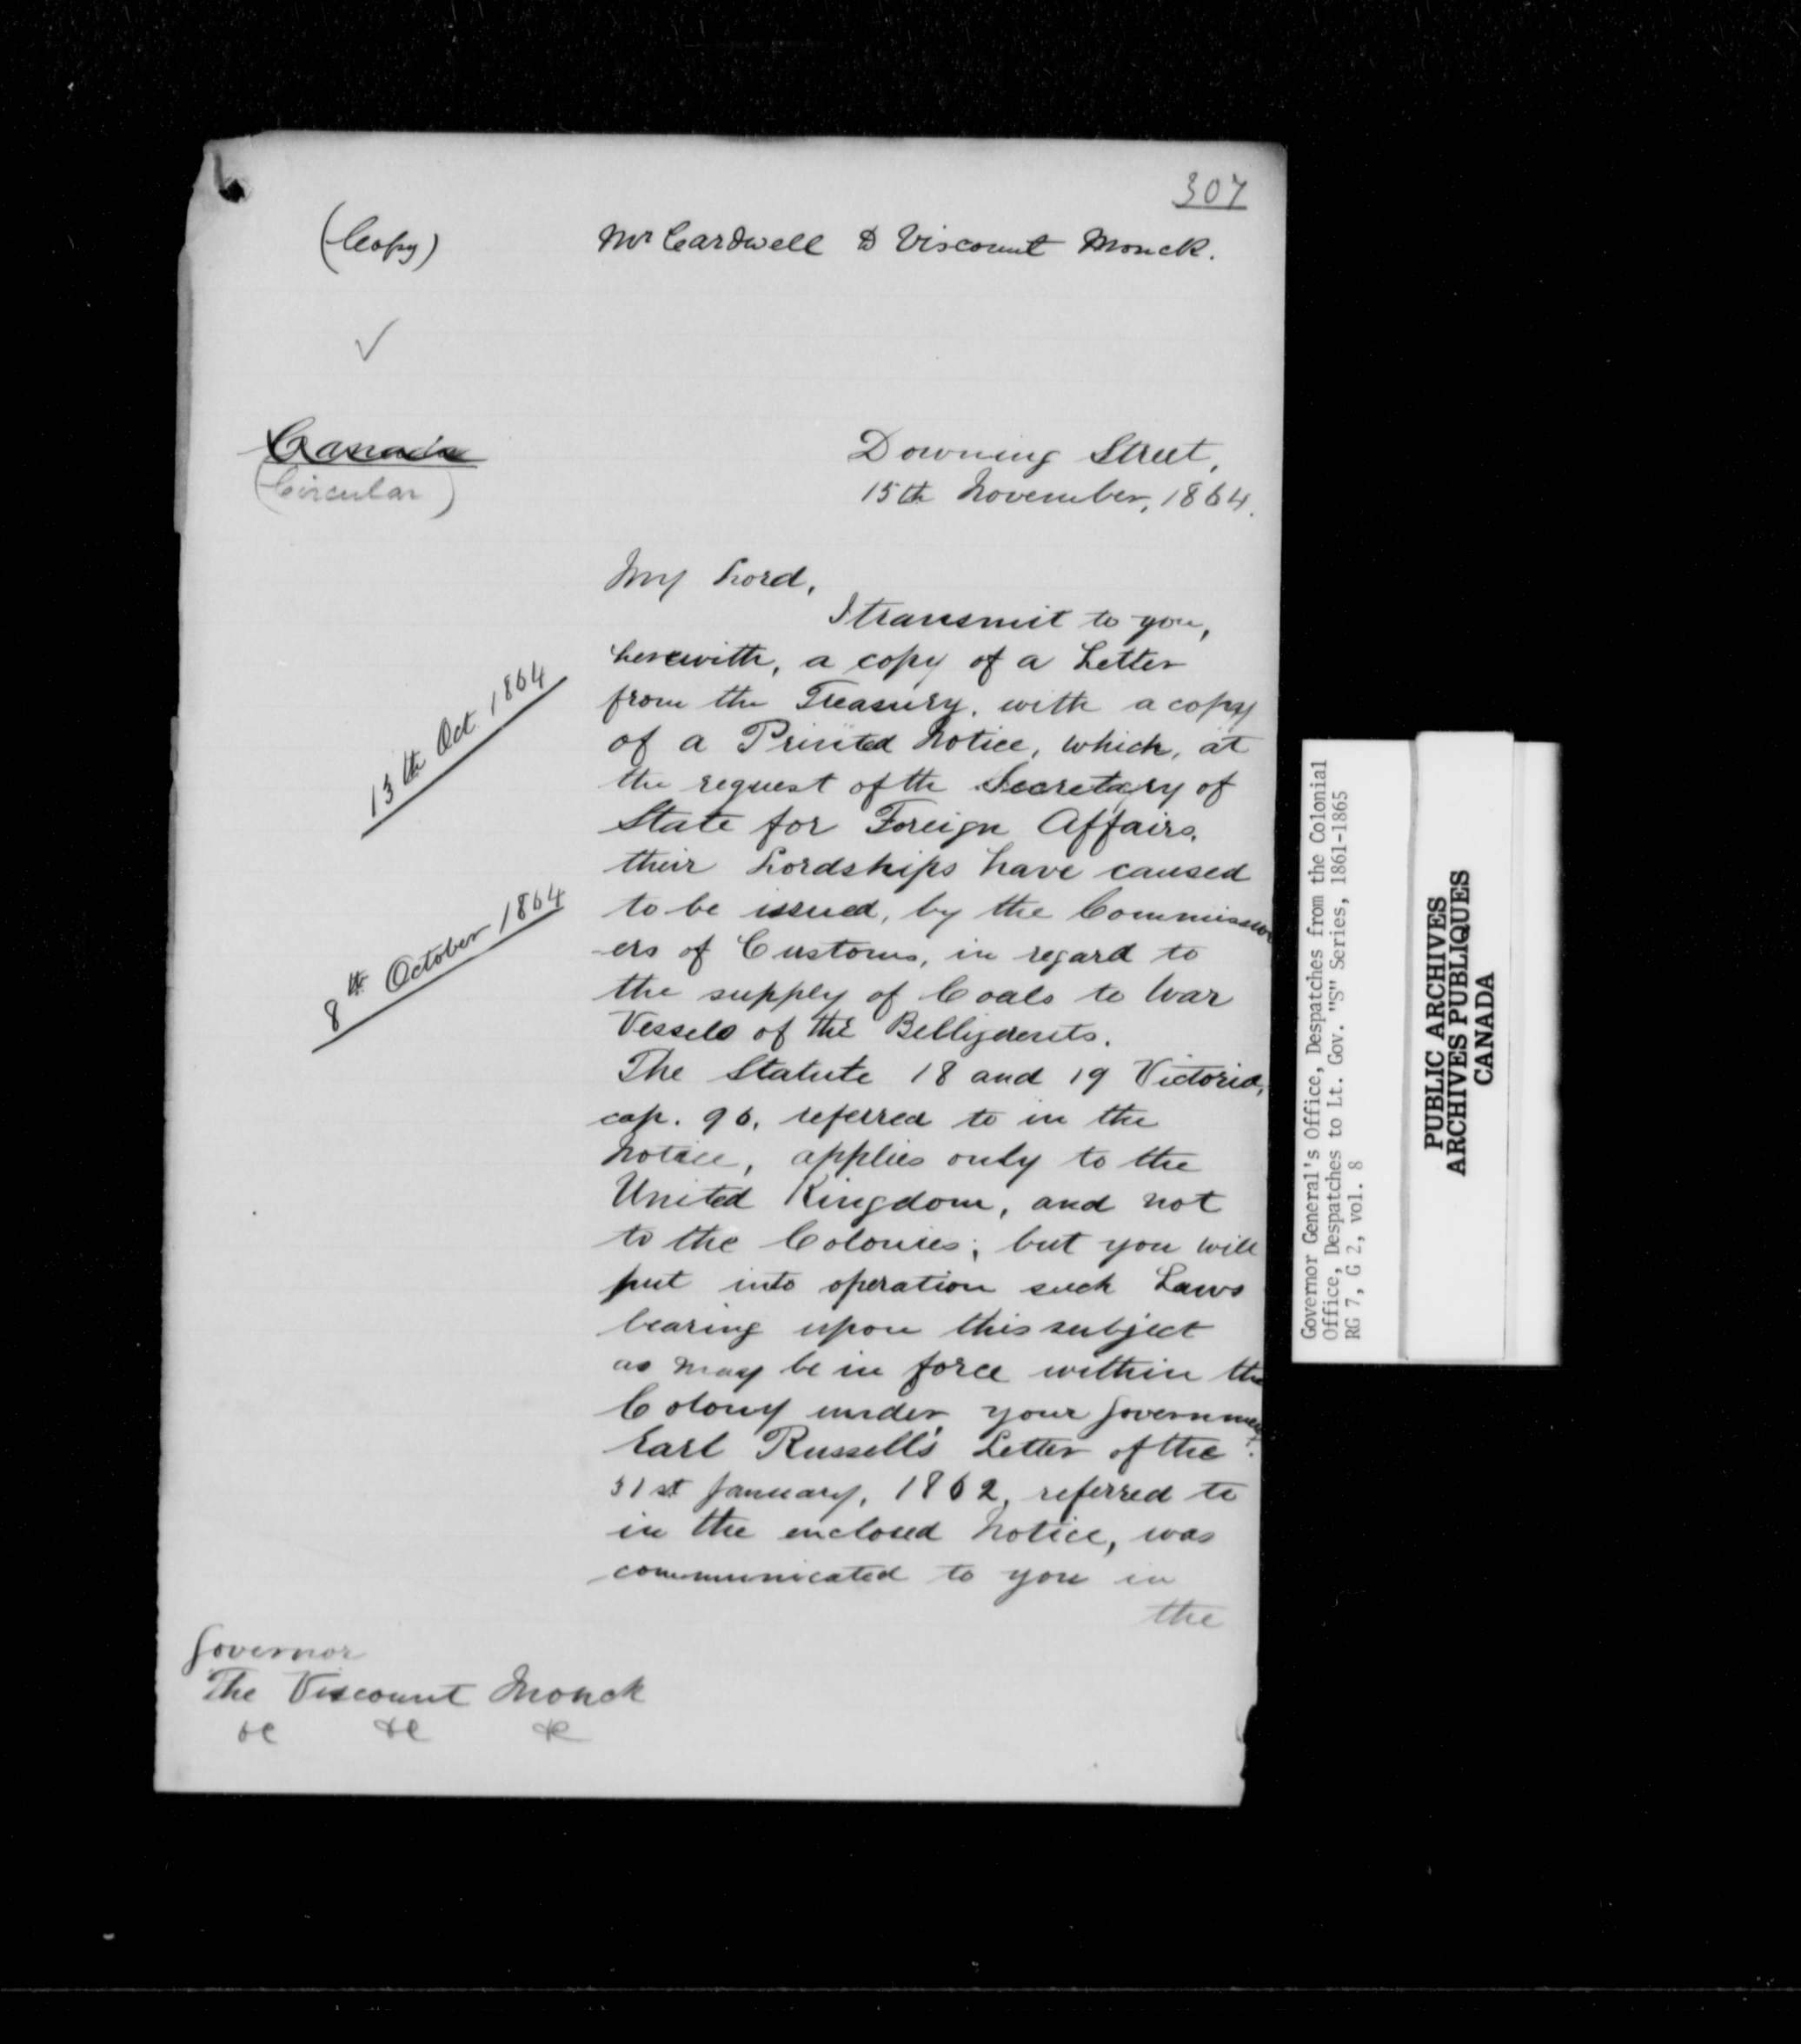 307
(Copy)
Mr Cardwell to Viscount Monck.
Canada
(Circular)
Downing Street,
15th November, 1864.
My Lord,
I transmit to you,
herewith, a copy of a Letter
from the Treasury, with a copy
of a Printed Notice, which, at
the request of the Secretary of
State for Foreign Affairs,
their Lordships have caused
to be issued, by the Commission
-ers of Customs, in regard to
the supply of Coals to War
Vessels of the Belligerents.
The Statute 18 and 19 Victoria,
cap. 96, referred to in the
Notice, applies only to the
United Kingdom, and not
to the Colonies; but you will
put into operation such Laws
bearing upon this subject
as may be in force within the
Colony under your Government.
Earl Russell's Letter of the
31st January, 1862, referred to
in the enclosed Notice, was
communicated to you in
the
13th Oct 1864
8th October 1864
Governor
The Viscount Monck
&c &c &c
Governor General's Office, Despatches from the Colonial
Office, Despatches to Lt. Gov. "S" Series, 1861-1865
RG 7, G 2, vol. 8
PUBLIC ARCHIVES
ARCHIVES PUBLIQUES
CANADA